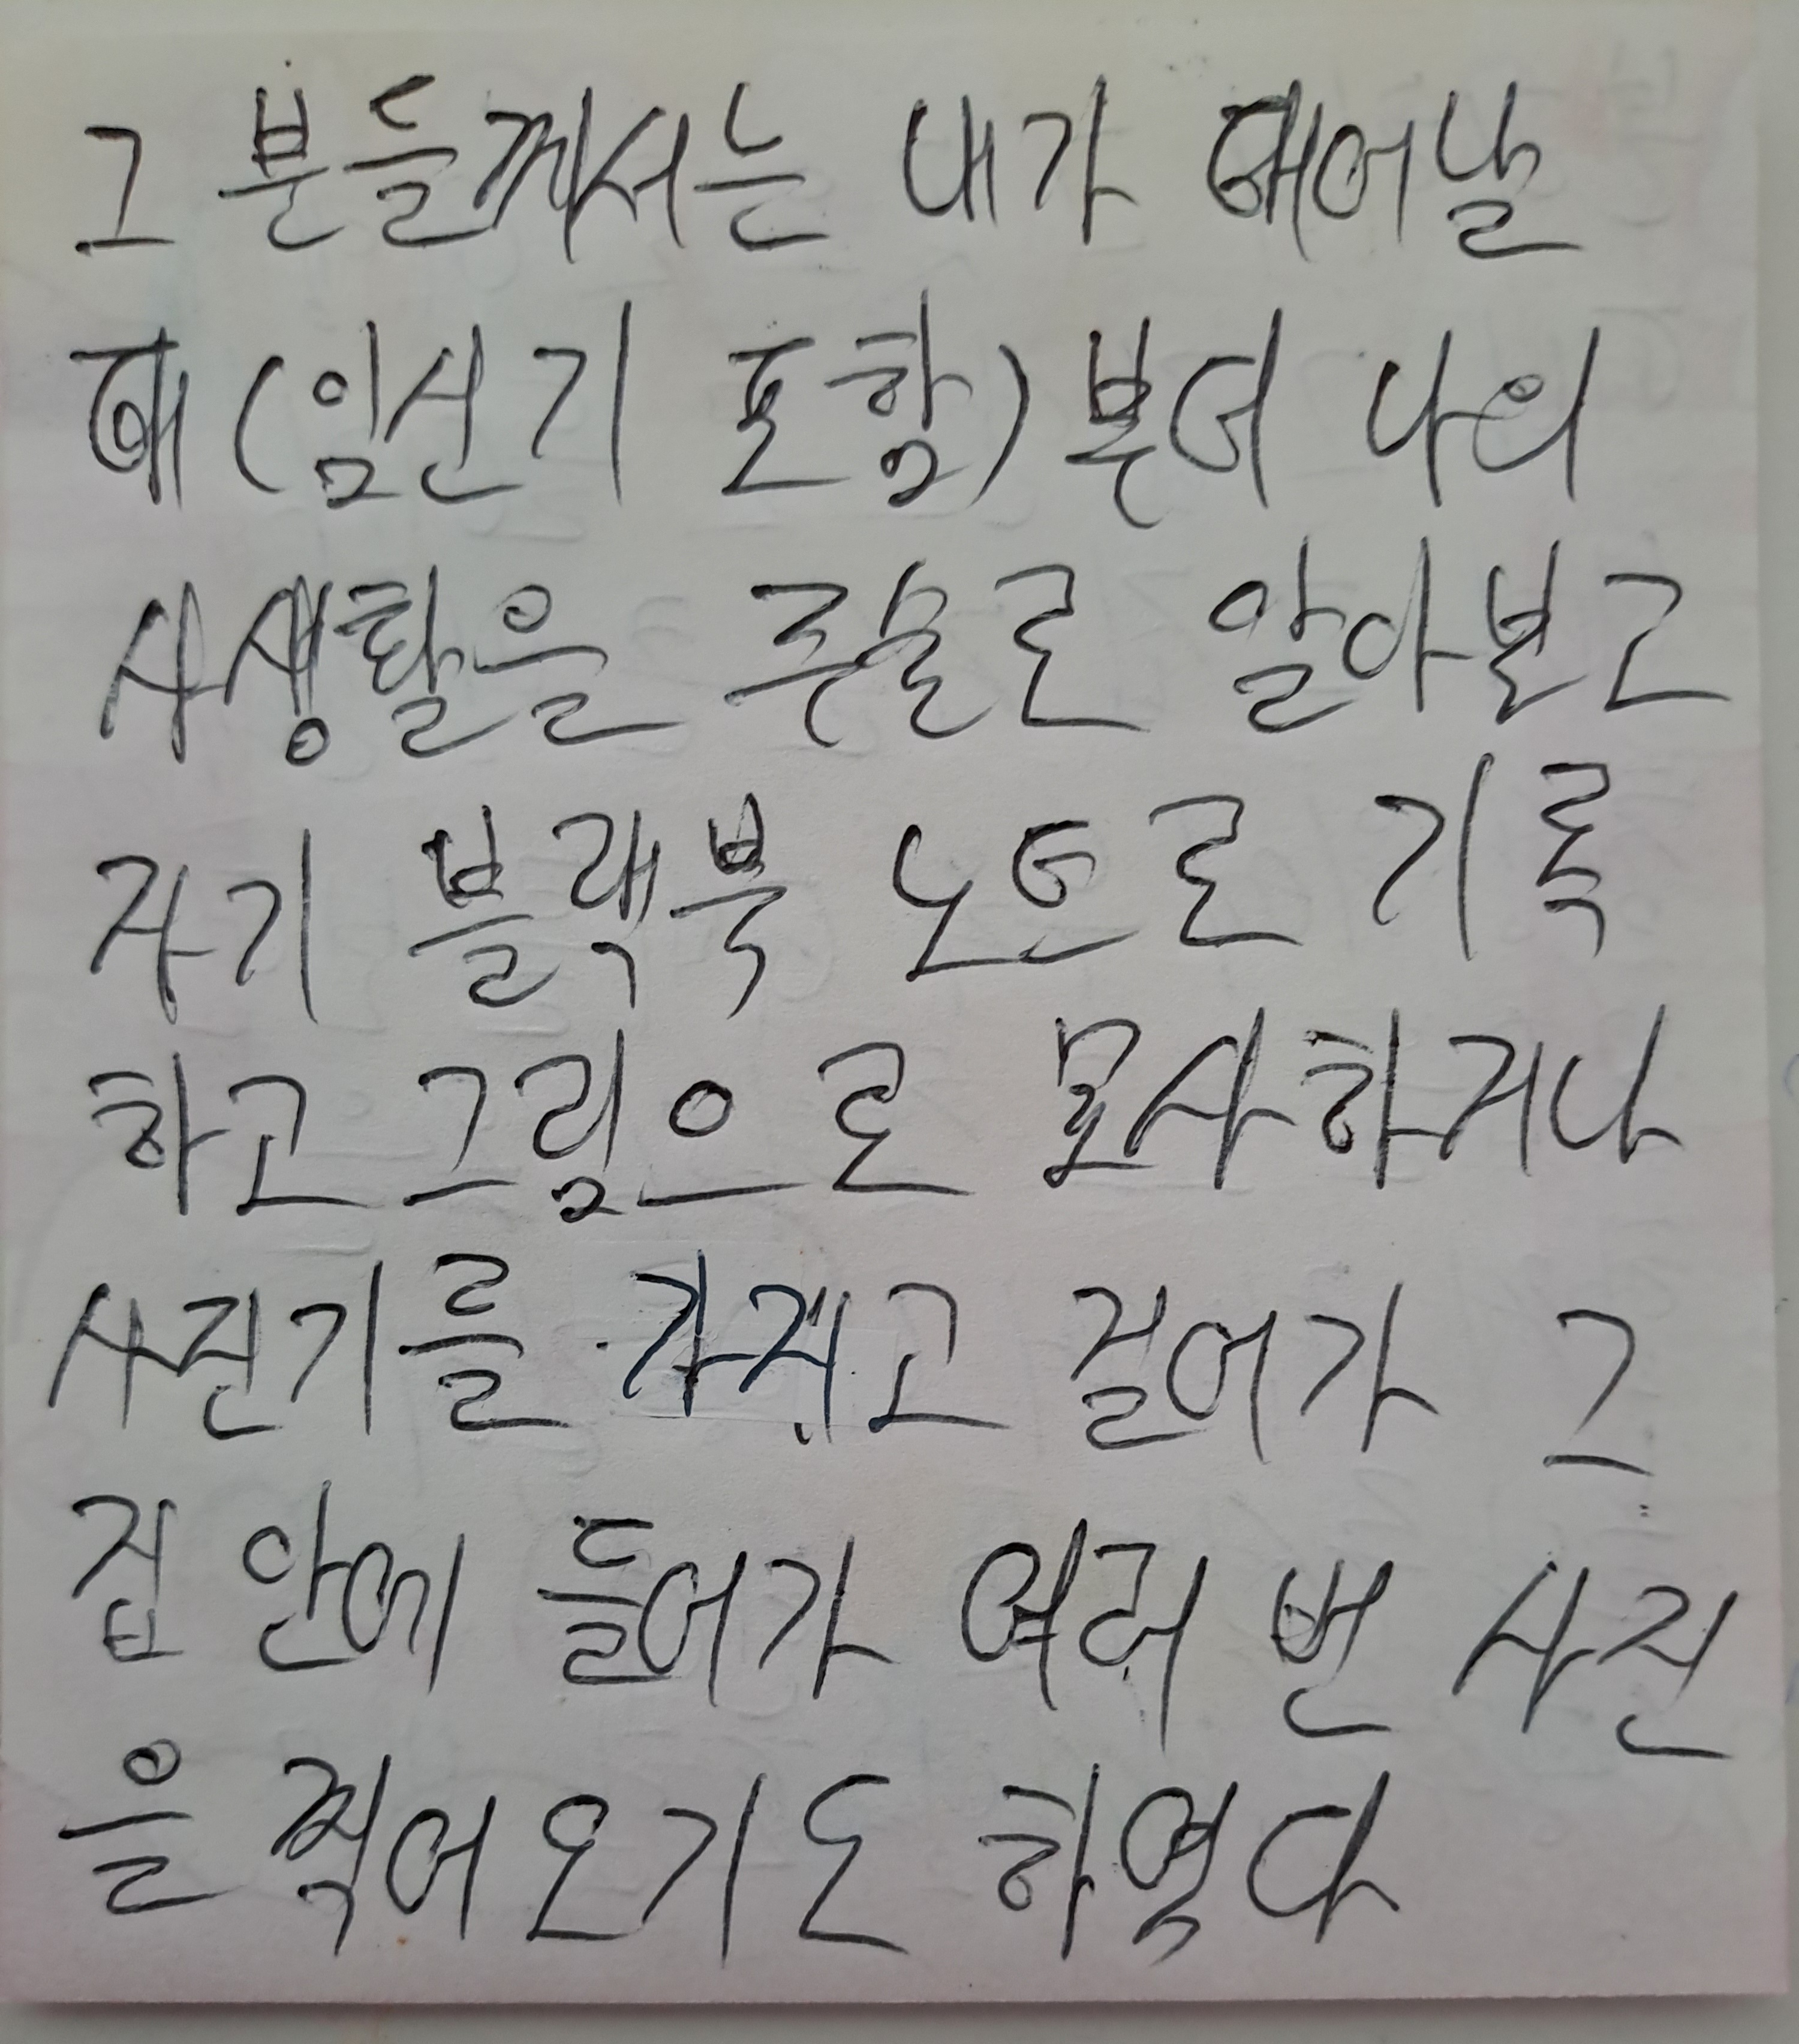 그 분들께서는 내가 태어날
때(임신기 포함)부터 나의
사생활을 주술로 알아보고
자기 블랙북 노트로 기록
하고 그림으로 묘사하거나
사진기를 가지고 걸어가 그
집 안에 들어가 여러 번 사진
을 찍어 오기도 하였다